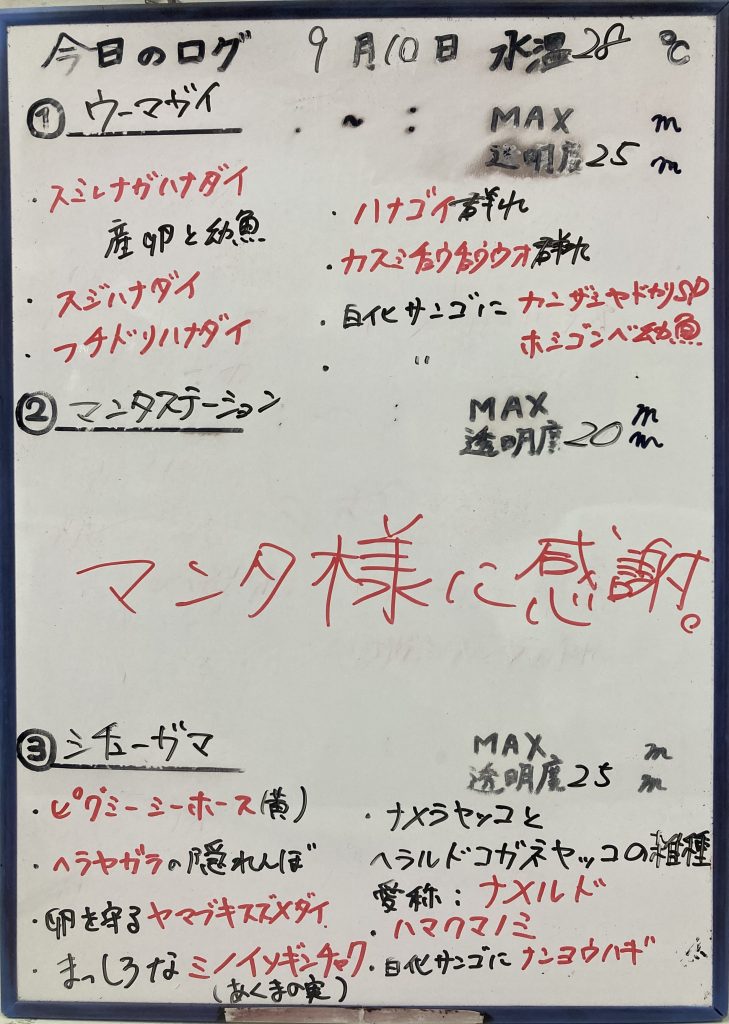 今日のログ 9月10日 水温28℃
① ウーマガイ . ~ : MAX m
透明度25m
・スミレナガハナダイ
産卵と幼魚
・スジハナダイ
・フチドリハナダイ
・ハナゴイ群れ
・カスミチョウチョウウオ群れ
・白化サンゴに カンザシヤドカリSP
・ 〃 ホシゴンベ幼魚
② マンタステーション : MAX m
透明度20m
マンタ様に感謝。
③ シチューガマ MAX m
透明度25m
・ピグミーシーホース(黄)
・ヘラヤガラの隠れんぼ
・卵を守るヤマブキスズメダイ
・まっしろなミノイソギンチャク
(あくまの実)
・ナメラヤッコと
ヘラルドコガネヤッコの雑種
愛称:ナメルド
・ハマクマノミ
・白化サンゴにナンヨウハギ